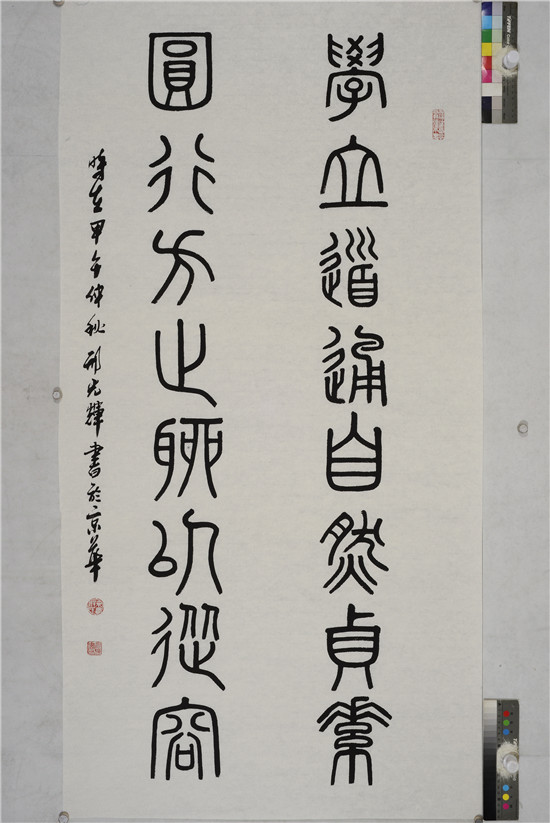 學立道通自然貞素
圓行方止聊以從容
時在甲午仲秋邢光輝書於京華